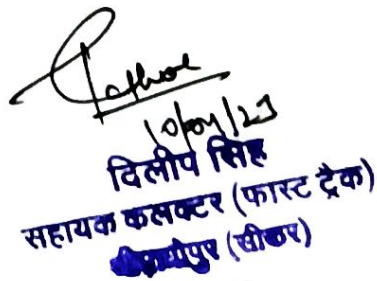 Rathore
10/04/23
दिलीप सिंह
सहायक कलक्टर (फास्ट ट्रैक)
(सीकर)